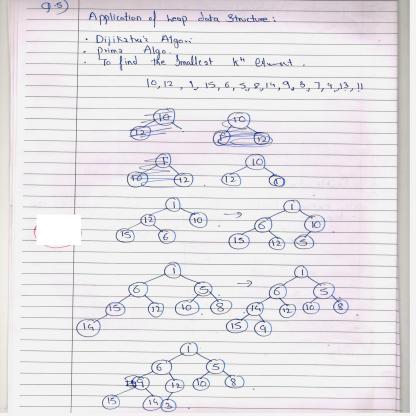 Q.5)
Application of heap data Structure :
• Dijikstra's Algo.
• prims Algo.
• To find the smallest kth element .
10, 12, 1, 15, 6, 5, 8, 14, 9, 3, 7, 4, 13, 11
10
12
10
12
1
10 12
10
12 1
1
12 10
15 6
→
1
6 10
15 12 5
1
6 5
15 12 10 8
14
→
1
6 5
14 12 10 8
15 9
1
6 5
9 12 10 8
15 14 3